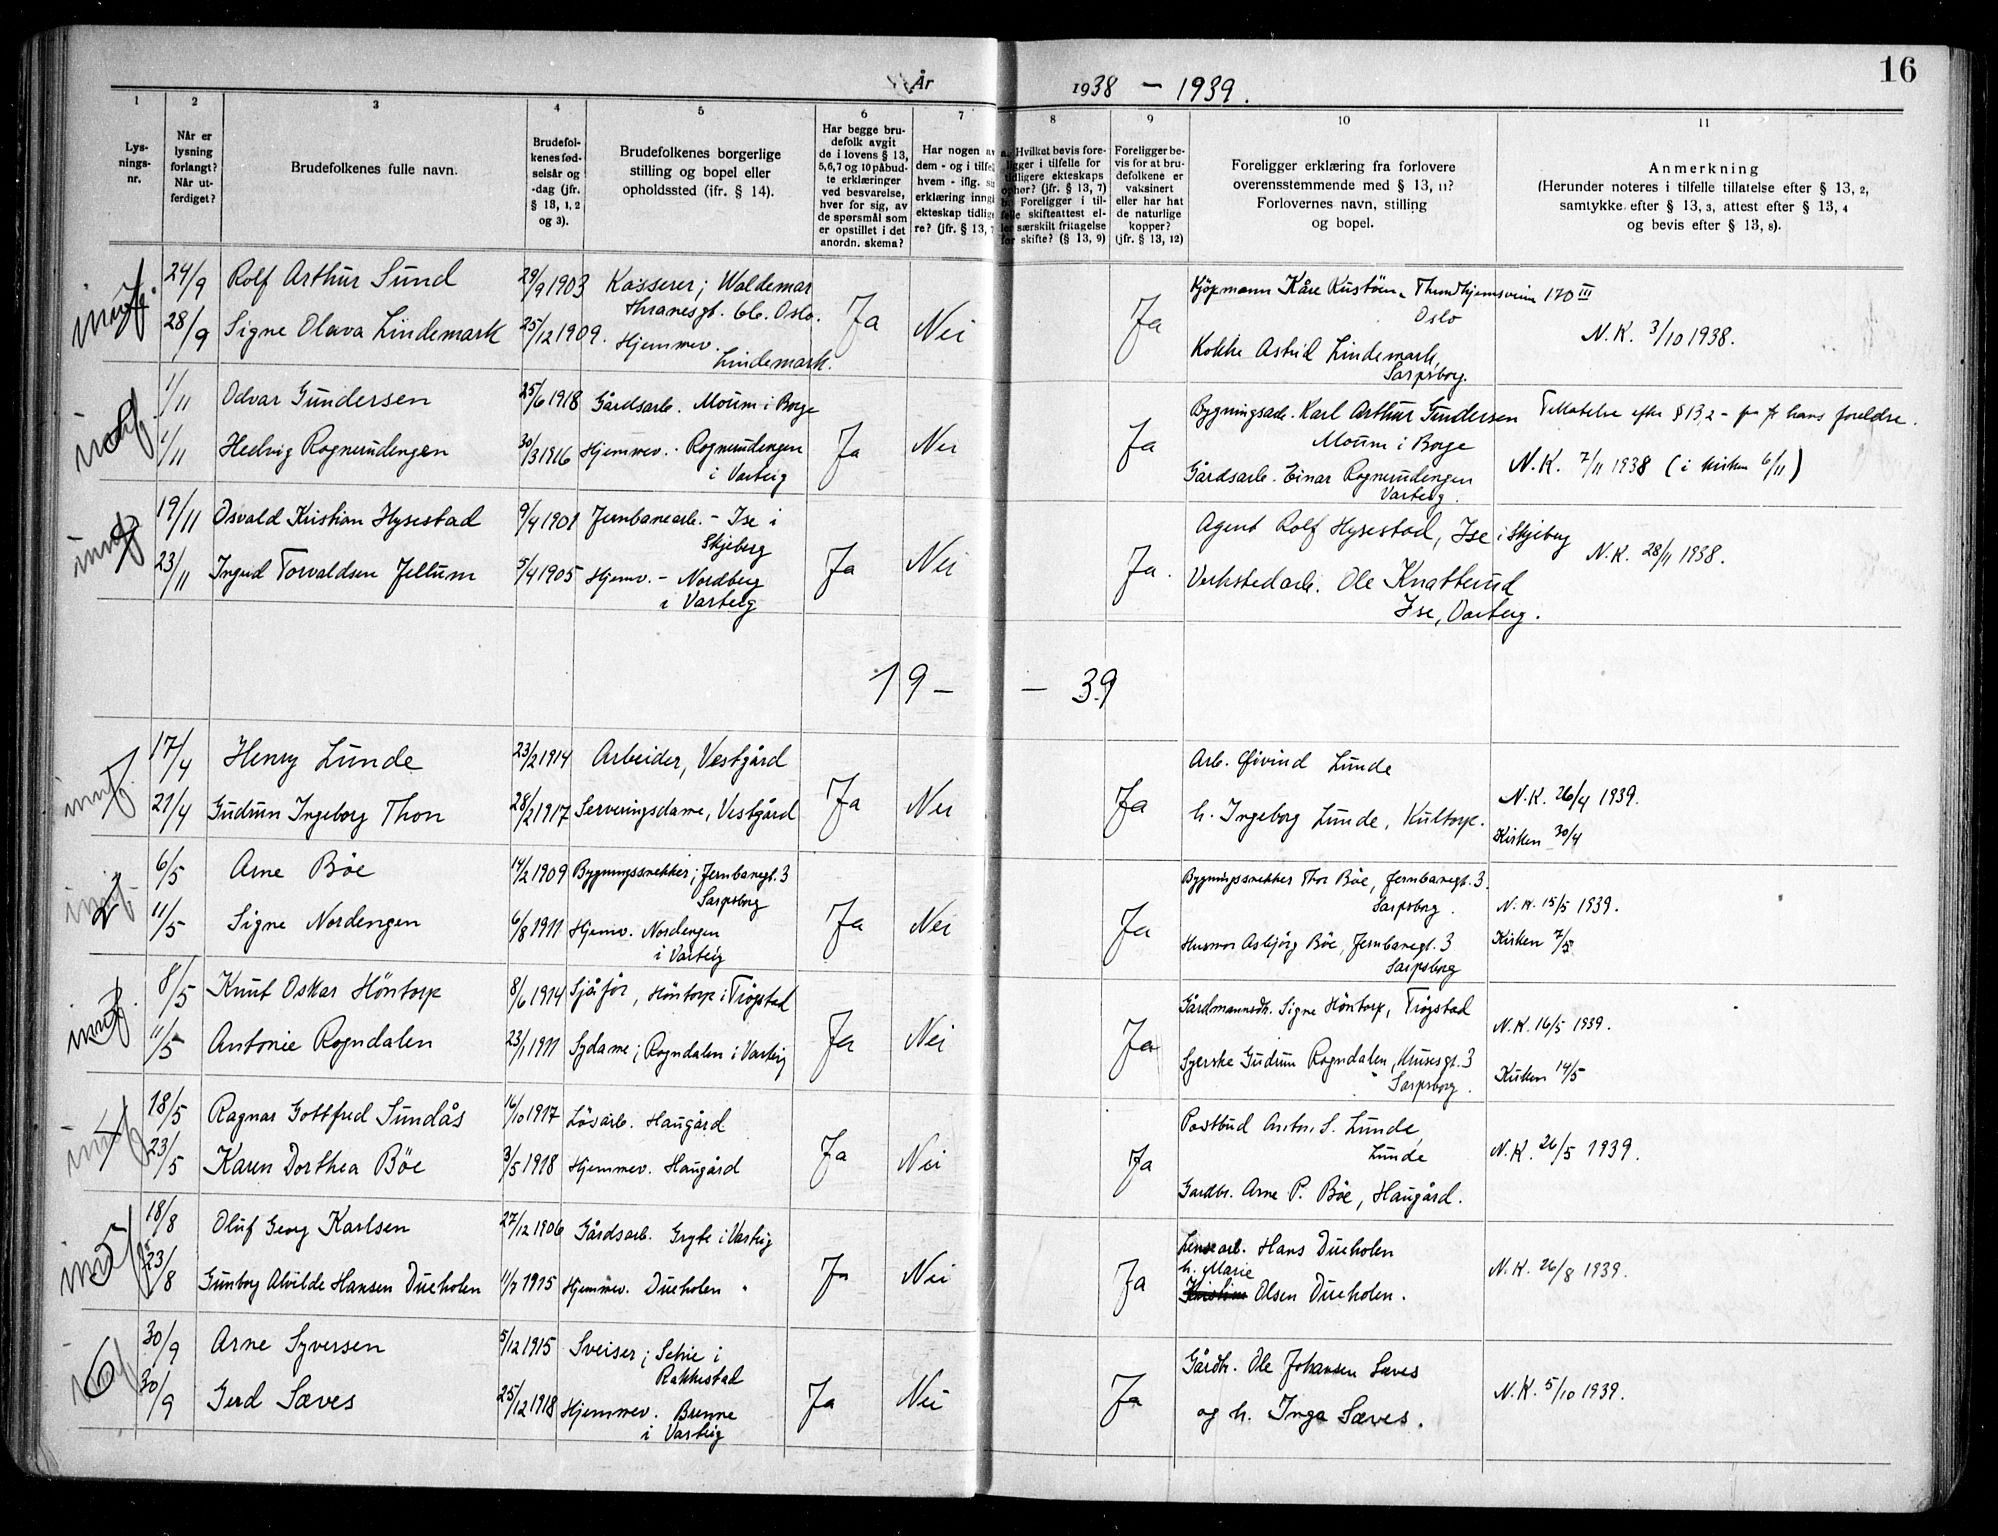 16
År 1938 - 1939.
1 2 3 4 5 6 7 8 9 10 11
Lys-
nings-
nr.
Når er
lysning
forlangt?
Når ut-
ferdiget?
Brudefolkenes fulle navn.
Brudefol-
kenes fød-
selsår og
-dag (jfr.
§ 13, 1, 2
og 3).
Brudefolkenes borgerlige
stilling og bopel eller
opholdssted (ifr. § 14).
Har begge bru-
defolk avgit
de i lovens § 13,
5,6,7 og 10 påbud-
te erklæringer
ved besvarelse,
hver for sig, av
de spørsmål som
er opstillet i det
anordn. skema?
Har nogen av
dem - og i tilfel
hvem - iflg. si
erklæring inng
ekteskap tidlig
re? (jfr. § 13, 7
a. Hvilket bevis fore-
ligger i tilfelle for
tidligere ekteskaps
ophør? (jfr. § 13, 7)
b. Foreligger i til-
felle skifteattest el-
ler særskilt fritagelse
for skifte? (§ 13, 9)
Foreligger be-
vis for at bru-
defolkene er
vaksinert
eller har hat
de naturlige
kopper?
(jfr. § 13, 12)
Foreligger erklæring fra forlovere
overensstemmende med § 13, 11?
Forlovernes navn, stilling
og bopel.
Anmerkning
(Herunder noteres i tilfelle tillatelse efter § 13, 2,
samtykke efter § 13, 3, attest efter § 13, 4
og bevis efter § 13, 8).
24/9 Rolf Arthur Sund 29/9 1903 Kasserer; Waldemar
Thranesgt. 66. Oslo.
28/9 Signe Olava Lindemark 25/12 1909. Hjemmev.
Lindemark.
Ja Nei Ja
Kjöpmann Kåre Rustöen, Trondhjemsveien 170 III
Oslo
Kokke Astrid Lindemark,
Sarpsborg.
N.K. 3/10 1938.
1/11 Odvar Gundersen 25/6 1918 Gårdsarb. Moum i Borge
1/11 Hedvig Rognerudengen 30/3 1916 Hjemmev. Rognerudengen
i Varteig
Ja Nei Ja
Bygningsarb. Karl Arthur Gundersen
Moum i Borge
Gårdsarb. Einar Rognerudengen
Varteig.
Tillatelse efter § 13,2 - fra hans foreldre.
N.K. 7/11 1938 (i kirken 6/11)
19/11 Osvald Kristian Hysestad 9/4 1901 Jernbanearb. - Ise i
Skjeberg
23/11 Ingrid Torvaldsen Jellum 5/4 1905 Hjemv. - Nordberg
i Varteig
Ja Nei Ja.
Agent Rolf Hysestad, Ise i Skjeberg
Verkstedarb. Ole Knatterud
Ise, Varteig.
N.K. 28/11 1938.
19 - - 39
1 17/4 Henry Lunde 23/2 1914 Arbeider, Vestgård
21/4 Gudrun Ingeborg Thon 28/2 1917 Serveringsdame, Vestgård
Ja Nei Ja
Arb. Øivind Lunde
h. Ingeborg Lunde, Kultorp.
N.K. 26/4 1939.
Kirken 30/4
2 6/5 Arne Böe 14/2 1909 Bygningssnekker; Jernbanegt. 3
Sarpsborg
11/5 Signe Nordengen 6/8 1911 Hjemv. Nordengen
i Varteig
Ja Nei Ja
Bygningssnekker Thor Böe, Jernbanegt. 3.
Sarpsborg.
Husmor Asbjörg Böe, Jernbanegt. 3
Sarpsborg
N.K. 15/5 1939.
Kirken 7/5
3 8/5 Knut Oskar Höntorp 8/6 1914 Sjåför, Höntorp i Trögstad
11/5 Antonie Rogndalen 23/1 1911 Sydame; Rogndalen i Varteig
Ja Nei Ja
Gårdmannsdt. Signe Höntorp, Trögstad
Syerske Gudrun Rogndalen, Krusesgt. 3
Sarpsborg.
N.K. 16/5 1939.
Kirken 14/5
4 18/5 Ragnar Gottfred Sundås 16/10 1917 Lösarb. Haugård
23/5 Karen Dorthea Böe 3/5 1918 Hjemmev. Haugård
Ja Nei Ja
Postbud Anton S. Lunde,
Lunde
Gardbr. Arne P. Böe, Haugård.
N.K. 26/5 1939.
5 18/8 Oluf Georg Karlsen 27/12 1906 Gårdsarb. Gryte i Varteig
23/8 Gunborg Alvilde Hansen Dueholen 11/7 1915 Hjemmev. Dueholen "
Ja Nei Ja
Lensearb. Hans Dueholen
h. Marie
Olsen Dueholen.
N.K. 26/8 1939.
6 30/9 Arne Syversen 5/12 1915 Sveiser; Setrie i
Rakkestad
30/9 Gerd Sæves 25/12 1918 Hjemmev. Brenne
i Varteig
Ja Nei Ja
Gårdbr. Ole Johansen Sæves
og h. Inga Sæves.
N.K. 5/10 1939.